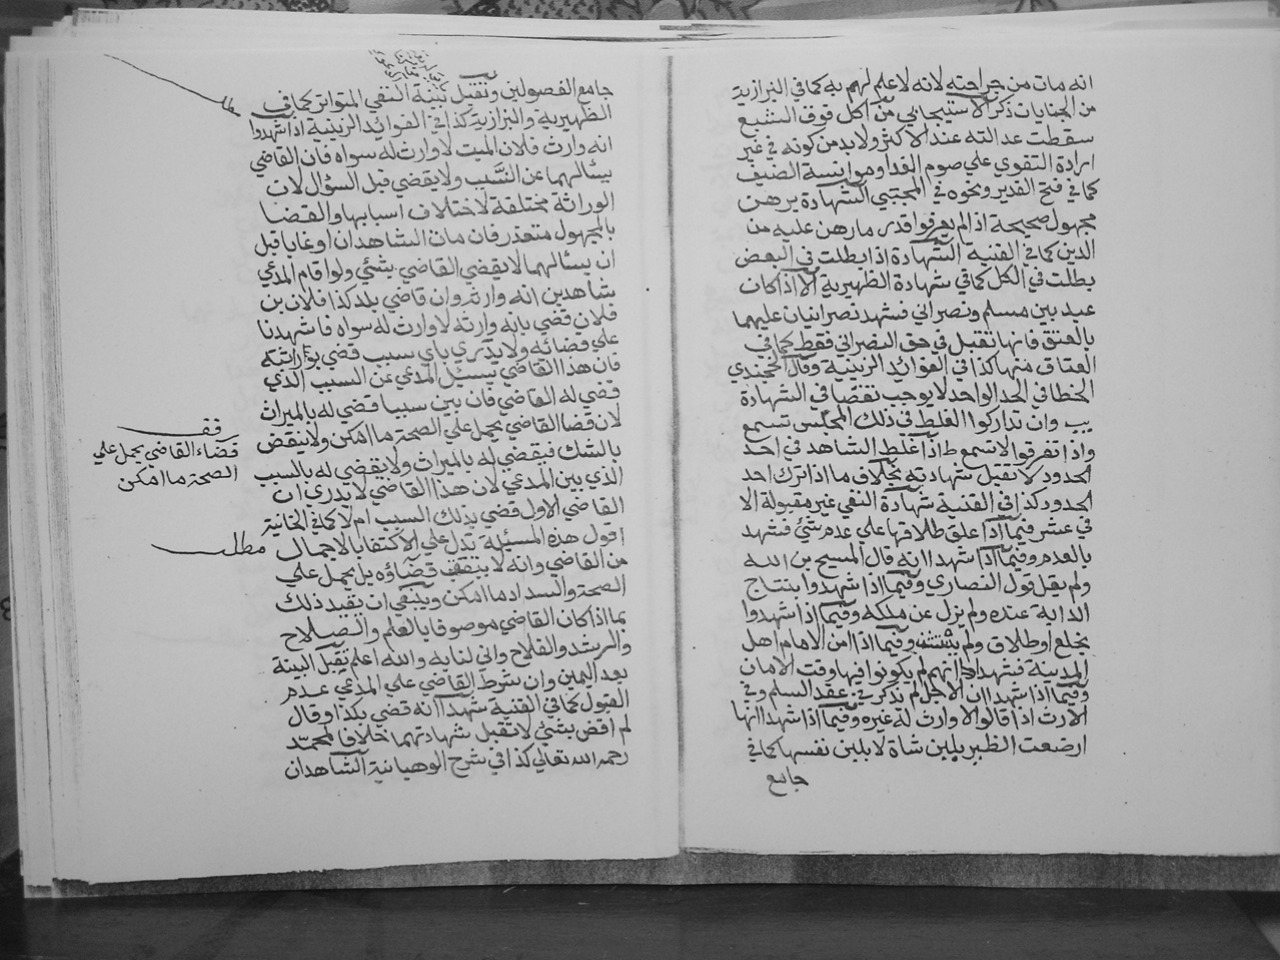 انه مات من جراحته لانه لا علم لهم به كما في البزازية
من الجنايات ذكر الاسبيجابي من اكل فوق الشبع
سقطت عدالته عند الاكثر ولا بد من كونه في غير
ارادة التقوي علي صوم الغد او موانسة الضيف
كما في فتح القدير ونحوه في المجتبي الشهادة برهن
مجهول صحيحة اذا لم يعرفوا قدر ما رهن عليه من
الدين كما في القنية الشهادة اذا بطلت في البعض
بطلت في الكل كما في شهادة الظهيرية الا اذا كان
عبد بين مسلم ونصراني فشهد نصرانيان عليهما
بالعتق فانها تقبل في حق النصراني فقط كما في
العتاق منها كذا في الفوائد الزينية وقال الخجندي
الخطا في الحد الواحد لا يوجب نقصا في الشهادة
يب وان تداركوا الغلط في ذلك المجلس تسمع
واذا تفرقوا لا تسمع ط اذا غلط الشاهد في احد
الحدود لا تقبل شهادته بخلاف ما اذا ترك احد
الحدود كذا في القنية شهادة النفي غير مقبولة الا
في عشر فيما اذا علق طلاقها علي عدم شئ فشهد
بالعدم وفيما اذا شهدا انه قال المسيح بن الله
ولم يقل قول النصاري وفيما اذا شهدوا بنتاج
الدابة عنده ولم يزل عن ملكه وفيما اذا شهدوا
بخلع او طلاق ولم يستثن وفيما اذا امن الامام اهل
المدينة فشهدا انهم لم يكونوا فيها وقت الامان
وفيما اذا شهدا ان الاجل لم يذكر في عقد السلم وفي
الارث اذا قالوا لا وارث له غيره وفيما اذا شهدا انها
ارضعت الظئر بلبن شاة لا بلبن نفسها كما في
جامع
جامع الفصولين وتقبل بينة النفي المتواتر كما في
الظهيرية والبزازية كذا في الفوائد الزينية اذا شهدوا
انه وارث فلان الميت لا وارث له سواه فان القاضي
يسئالهما عن النسب ولا يقضي قبل السؤال لان
الوراثة مختلفة لاختلاف اسبابها والقضا
بالمجهول متعذر فان مات الشاهدان او غابا قبل
ان يسئالهما لا يقضي القاضي بشئي ولو اقام المدعي
شاهدين انه وارثه وان قاضي بلد كذا فلان بن
فلان قضي بانه وارثه لا وارث له سواه فاشهدنا
علي قضائه ولا يدري باي سبب قضي بوراثته
فان هذا القاضي يسئل المدعي عن السبب الذي
قضي له القاضي فان بين سببا قضي له بالميراث
لان قضا القاضي يحمل علي الصحة ما امكن ولا ينقض
بالشك فيقضي له بالميراث ولا يقضي له بالسبب
الذي بين المدعي لان هذا القاضي لا يدري ان
القاضي الاول قضي بذلك السبب ام لا كما في الخانية
اقول هذه المسئلة تدل علي الاكتفا بالاجمال
من القاضي وانه لا ينقض قضاؤه بل يحمل علي
الصحة والسداد ما امكن وينبغي ان يقيد ذلك
بما اذا كان القاضي موصوفا بالعلم والصلاح
والرشد والفلاح واني لنا به والله اعلم تقبل البينة
بعد اليمين وان شرط القاضي علي المدعي عدم
القبول كما في القنية شهدا انه قضي بكذا وقال
لم اقض بشئ لا تقبل شهادتهما خلافا لمحمد
رحمه الله تعالي كذا في شرح الوهبانية الشاهدان
مطلب
قف
قضاء القاضي يحمل علي
الصحة ما امكن
مطلب